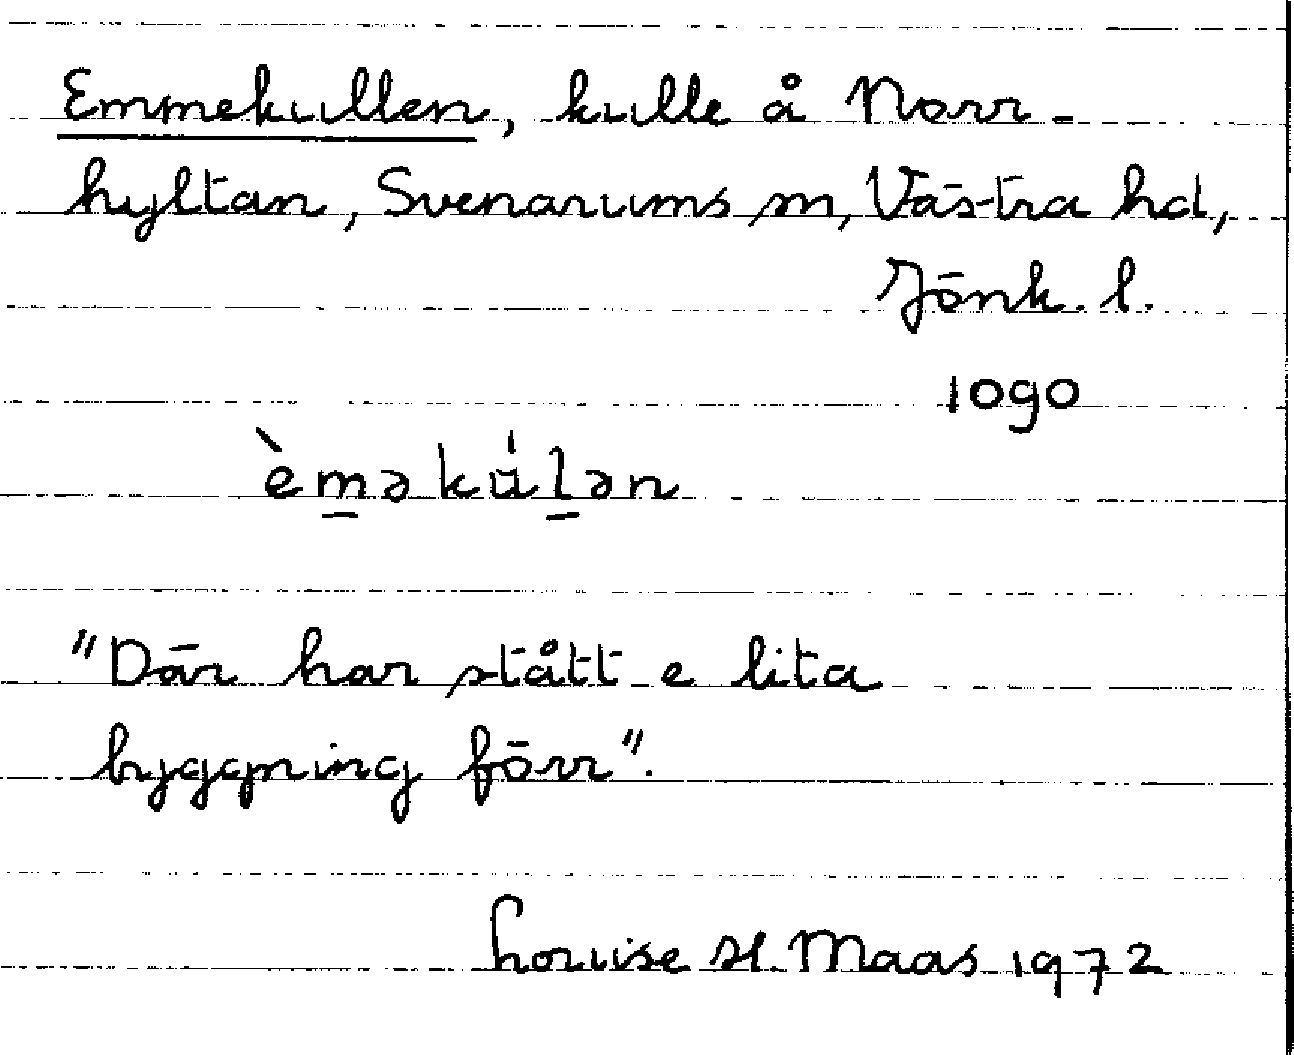 Emmekullen, kulle å Norr-
hyltan, Svenarums sn, Västra hd,
Jönk. l.
1090
èm̲əkúl̲ən
"Där har stått e lita
byggning förr".
Louise H. Maas 1972